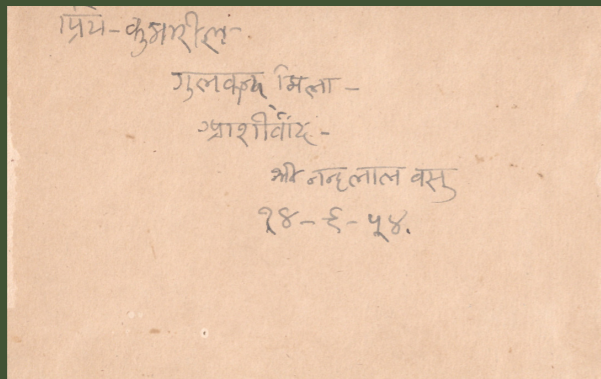 प्रिय-कुमारील.
गुलकन्द मिला-
आशीर्वाद-
श्री नन्दलाल वसु
१४-६-५४.